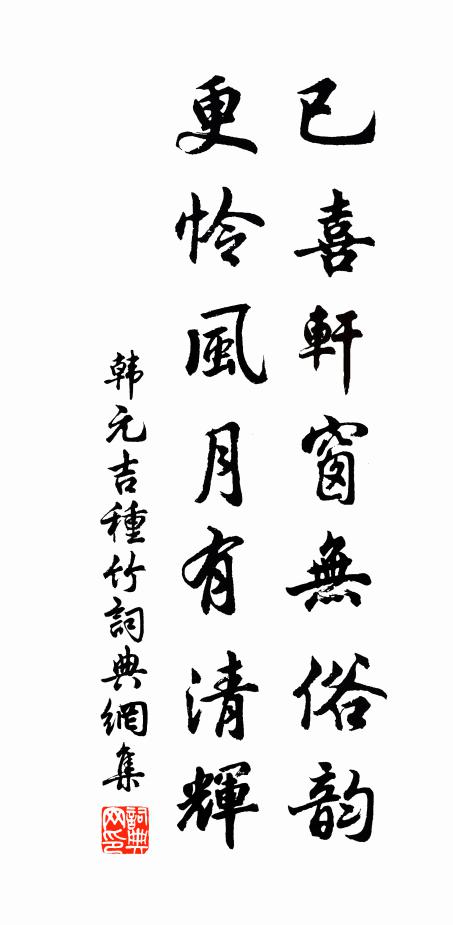 已喜軒窗無俗韵
更怜風月有清輝
韩元吉種竹詞典網集
詞典网印